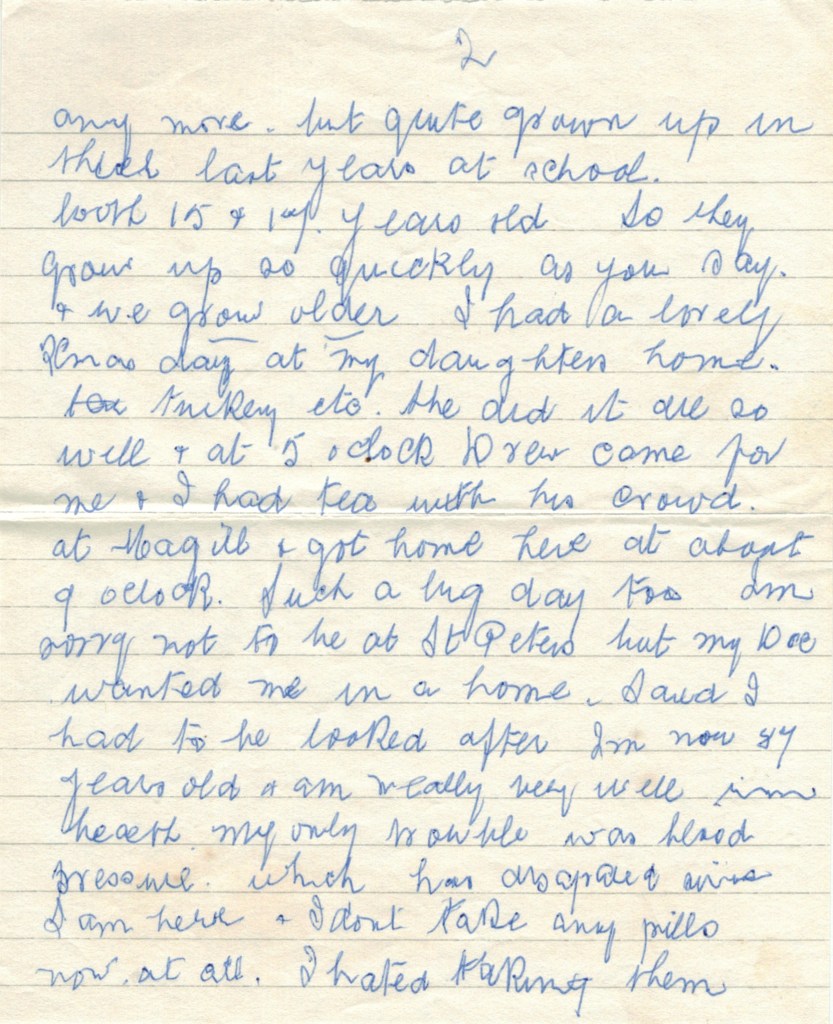 2
any more. but quite grown up in
their last years at school.
both 15 & 17. years old So they
grow up so quickly as you say.
& we grow older I had a lovely
Xmas day at my daughters home.
turkey etc. She did it all so
well & at 5 oclock Drew came for
me & I had tea with his crowd.
at Magill & got home here at about
9 oclock. Such a big day too am
sorry not to be at St Peters but my Doc
wanted me in a home. Said I
had to be looked after Im now
years old & am really very well in
health. my only trouble was blood
pressure. which has
I am here & I dont take any pills
now. at all. I hated taking them